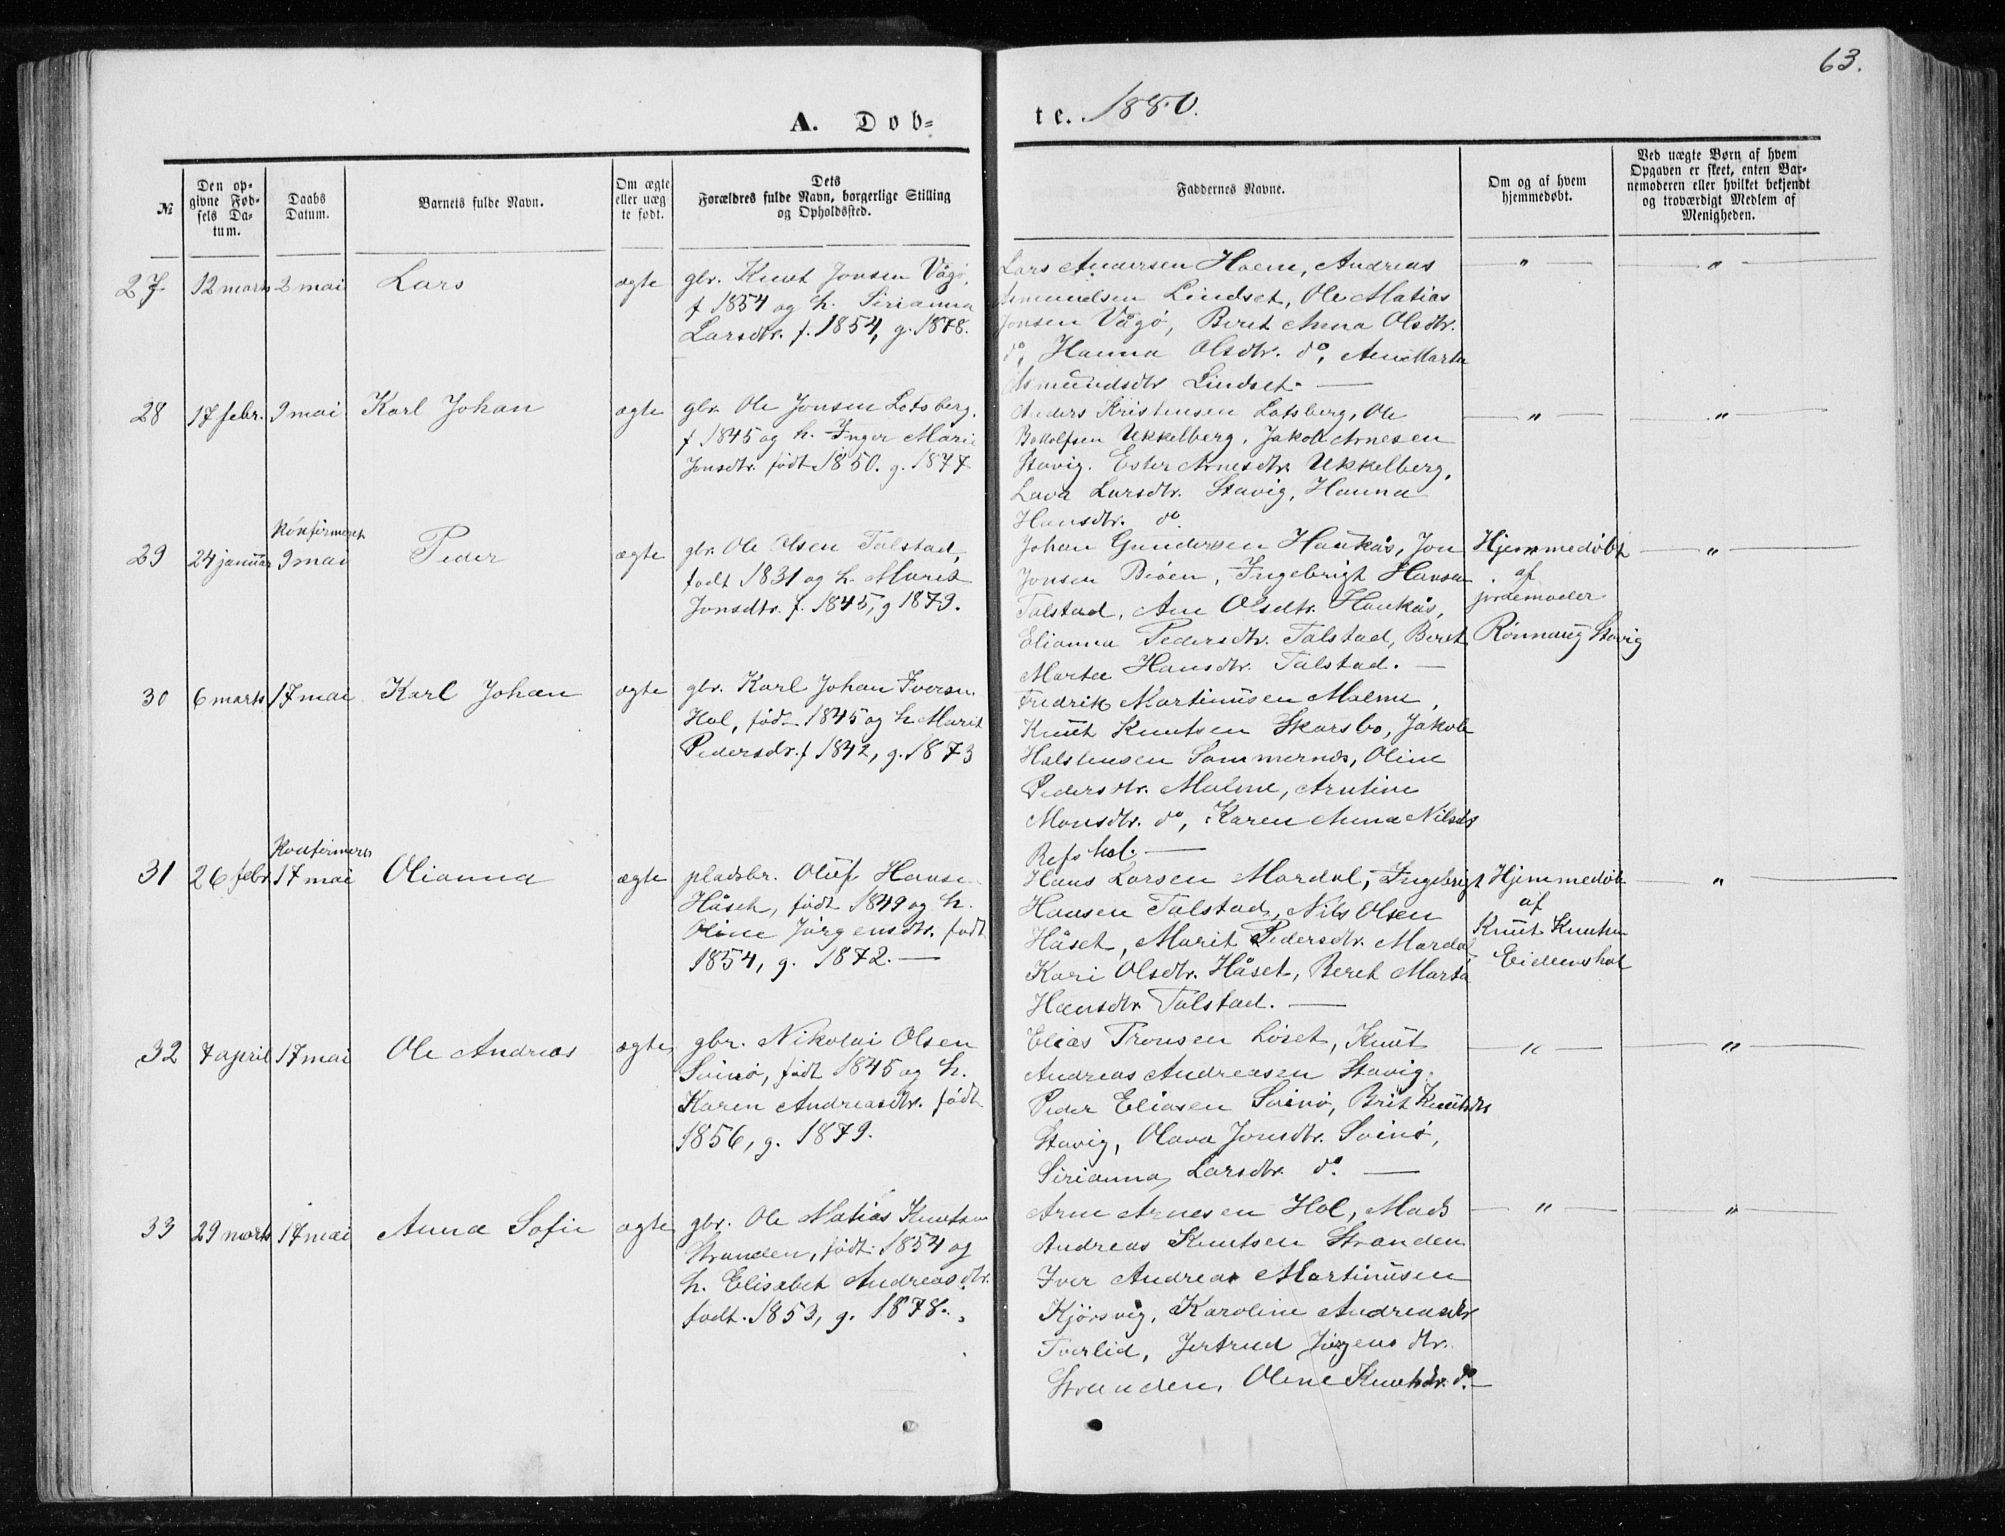 63.
A. Døb=
te. 1880.
№
Den op=
givne Fød=
sels Da=
tum.
Daabs
Datum.
Barnets fulde Navn.
Om ægte
eller uæg
te født.
Dets
Forældres fulde Navn, borgerlige Stilling
og Opholdssted.
Faddernes Navne.
Om og af hvem
hjemmedøbt.
Ved uægte Børn af hvem
Opgaven er skeet, enten Bar=
nemoderen eller hvilket bekjendt
og troværdigt Medlem af
Menigheden.
27 12 marts 2 mai Lars ægte
gbr. Knut Jonsen Vågø,
f 1854 og h. Sirianna
Larsdtr. f. 1854, g. 1878.
Lars Andersen Hoem, Andreas
Asmundsen Lindset, Ole Matias
Jonsen Vågø, Beret Anna Olsdtr.
do, Hanna Olsdtr. do, Ane Marta
Asmundsdtr Lindset. —
— " — — " —
28 17 febr. 9 mai Karl Johan ægte
gbr. Ole Jonsen Lotsberg,
f. 1845 og h. Inger Marie
Jonsdtr. født 1850. g. 1877
Anders Kristensen Lotsberg, Ole
Bottolfsen Ukkelberg, Jakob Arnesen
Stavig. Ester Arnesdtr. Ukkelberg,
Lava Larsdtr. Stavig, Hanna
Hansdtr. do
— " — — " —
29 24 januar Konfirmeret
9 mai Peder ægte
gbr. Ole Olsen Talstad,
født 1831 og h. Marit
Jonsdtr. f. 1845, g 1879.
Johan Gundersen Haukås, Jon
Jonsen Bøen, Ingebrigt Hansen
Talstad, Ane Olsdtr. Haukås,
Elianna Pedersdtr. Talstad, Beret
Marta Hansdtr. Talstad. —
Hjemmedøbt
af
jordemoder
Rønnaug Stavig
— " —
30 6 marts 17 mai Karl Johan ægte
gbr. Karl Johan Iversen
Hol, født 1845 og h Marit
Pedersdr. f 1842, g. 1873
Fredrik Martinusen Malme,
Knut Knutsen Skarsbo, Jakob
Halstensen Sommernes, Oline
Pedersdtr. Malme, Arntine
Monsdtr. do, Karen Anna Nilsdtr
Refshol. —
31 26 febr. Konfirmeret
17 mai Olianna ægte
pladsbr. Oluf Hansen
Håset, født 1849 og h.
Oline Jørgensdtr. født
1854, g. 1872. —
Hans Larsen Mordal, Ingebrigt
Hansen Talstad, Nils Olsen
Håset, Marit Pedersdtr. Mordal
Kari Olsdtr. Håset, Beret Marta
Hansdtr Talstad. —
Hjemmedøbt
af
Knut Knutsen
Eidemshol
— " —
32 7 april 17 mai Ole Andreas ægte
gbr. Nikolai Olsen
Svinø, født 1845 og h.
Karen Andreasdtr. født
1856, g. 1879.
Elias Tronsen Løset, Knut
Andreas Andreasen Stavig.
Peder Eliasen Svinø, Brit Knutsdtr
Stavig, Olava Jonsdtr. Svinø,
Sirianna Larsdtr. do. —
— " — — " —
33 29 marts 17 mai Anna Sofie ægte
gbr. Ole Matias Knutsen
Stranden, født 1854 og
h. Elisabet Andreasdtr.
født. 1853, g. 1878.
Arne Arnesen Hol, Mads
Andreas Knutsen Stranden
Iver Andreas Martinusen
Kjørsvig, Karoline Andreasdtr
Tverlid, Jertrud Jørgensdtr.
Stranden, Oline Knutsdr. do. —
— " — — " —